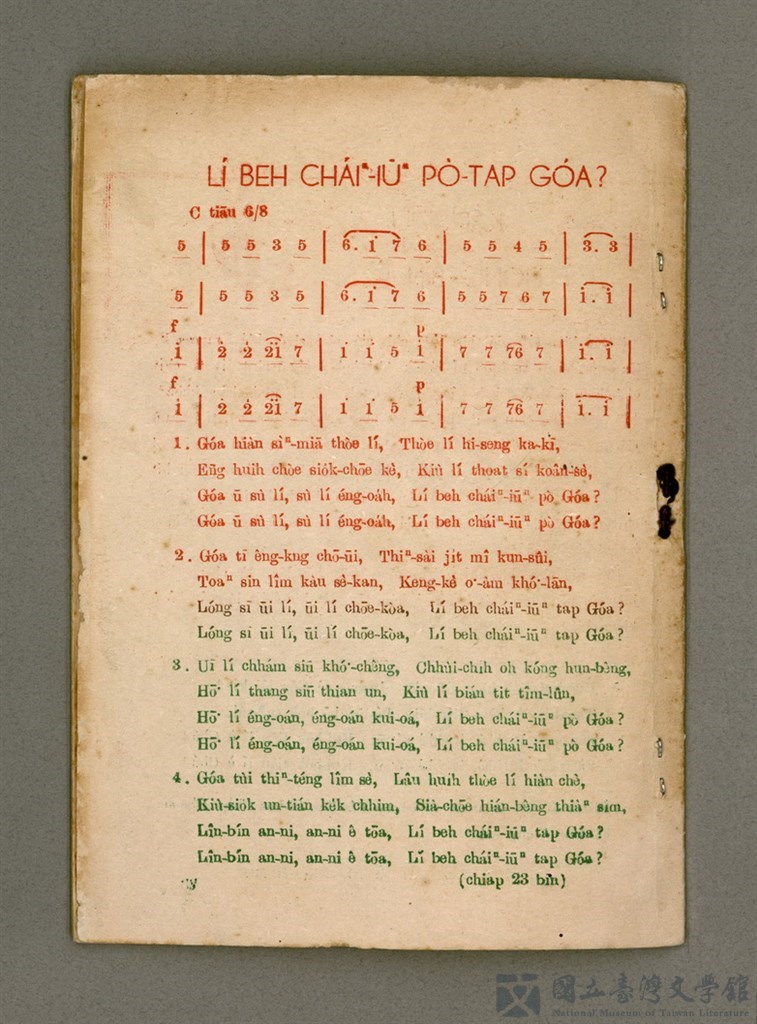 LÍ BEH CHÁIⁿ-IŪⁿ PÒ-TAP GÓA?
C tiāu 6/8
5 | 5 5 3 5 | 6. i 7 6 | 5 5 4 5 | 3. 3 |
5 | 5 5 3 5 | 6. i 7 6 | 5 5 7 6 7 | i. i |
f p
i | 2̇ 2̇ 2̇i 7 | i i 5 i | 7 7 76 7 | i. i |
f p
i | 2̇ 2̇ 2̇i 7 | i i 5 i | 7 7 76 7 | i. i |
1. Góa hiàn sìⁿ-miā thòe lí, Thòe lí hi-seng ka-kī,
Eng huih chòe sio̍k-chōe kè, Kiù lí thoat sí koân-sè,
Góa ū sù lí, sù lí éng-oa̍h, Lí beh cháiⁿ-iūⁿ pò Góa?
Góa ū sù lí, sù lí éng-oa̍h, Lí beh cháiⁿ-iūⁿ pò Góa?
2. Góa tī êng-kng chō-ūi, Thiⁿ-sài ji̍t mî kun-sûi,
Toaⁿ sin lîm kàu sè-kan, Keng-kè o͘-àm khó͘-lān,
Lóng sī ūi lí, ūi lí chōe-kòa, Lí beh cháiⁿ-iūⁿ tap Góa?
Lóng sī ūi lí, ūi lí chōe-kòa, Lí beh cháiⁿ-iūⁿ tap Góa?
3. Uī lí chhám siū khó͘-chêng, Chhùi-chi̍h oh kóng hun-bêng,
Hō͘ lí thang siū thian un, Kiù lí bián tit tîm-lûn,
Hō͘ lí éng-oán, éng-oán kui-oá, Lí beh cháiⁿ-iūⁿ pò Góa?
Hō͘ lí éng-oán, éng-oán kui-oá, Lí beh cháiⁿ-iūⁿ pò Góa?
4. Góa tùi thiⁿ-téng lîm sè, Lâu huih thòe lí hiàn chè,
Kiù-sio̍k un-tián ke̍k chhim, Sià-chōe hián-bêng thiàⁿ sim,
Lîn-bín an-ni, an-ni ê tōa, Lí beh cháiⁿ-iūⁿ tap Góa?
Lîn-bín an-ni, an-ni ê tōa, Lí beh cháiⁿ-iūⁿ tap Góa?
(chiap 23 bīn)
國立臺灣文學館
National Museum of Taiwan Literature